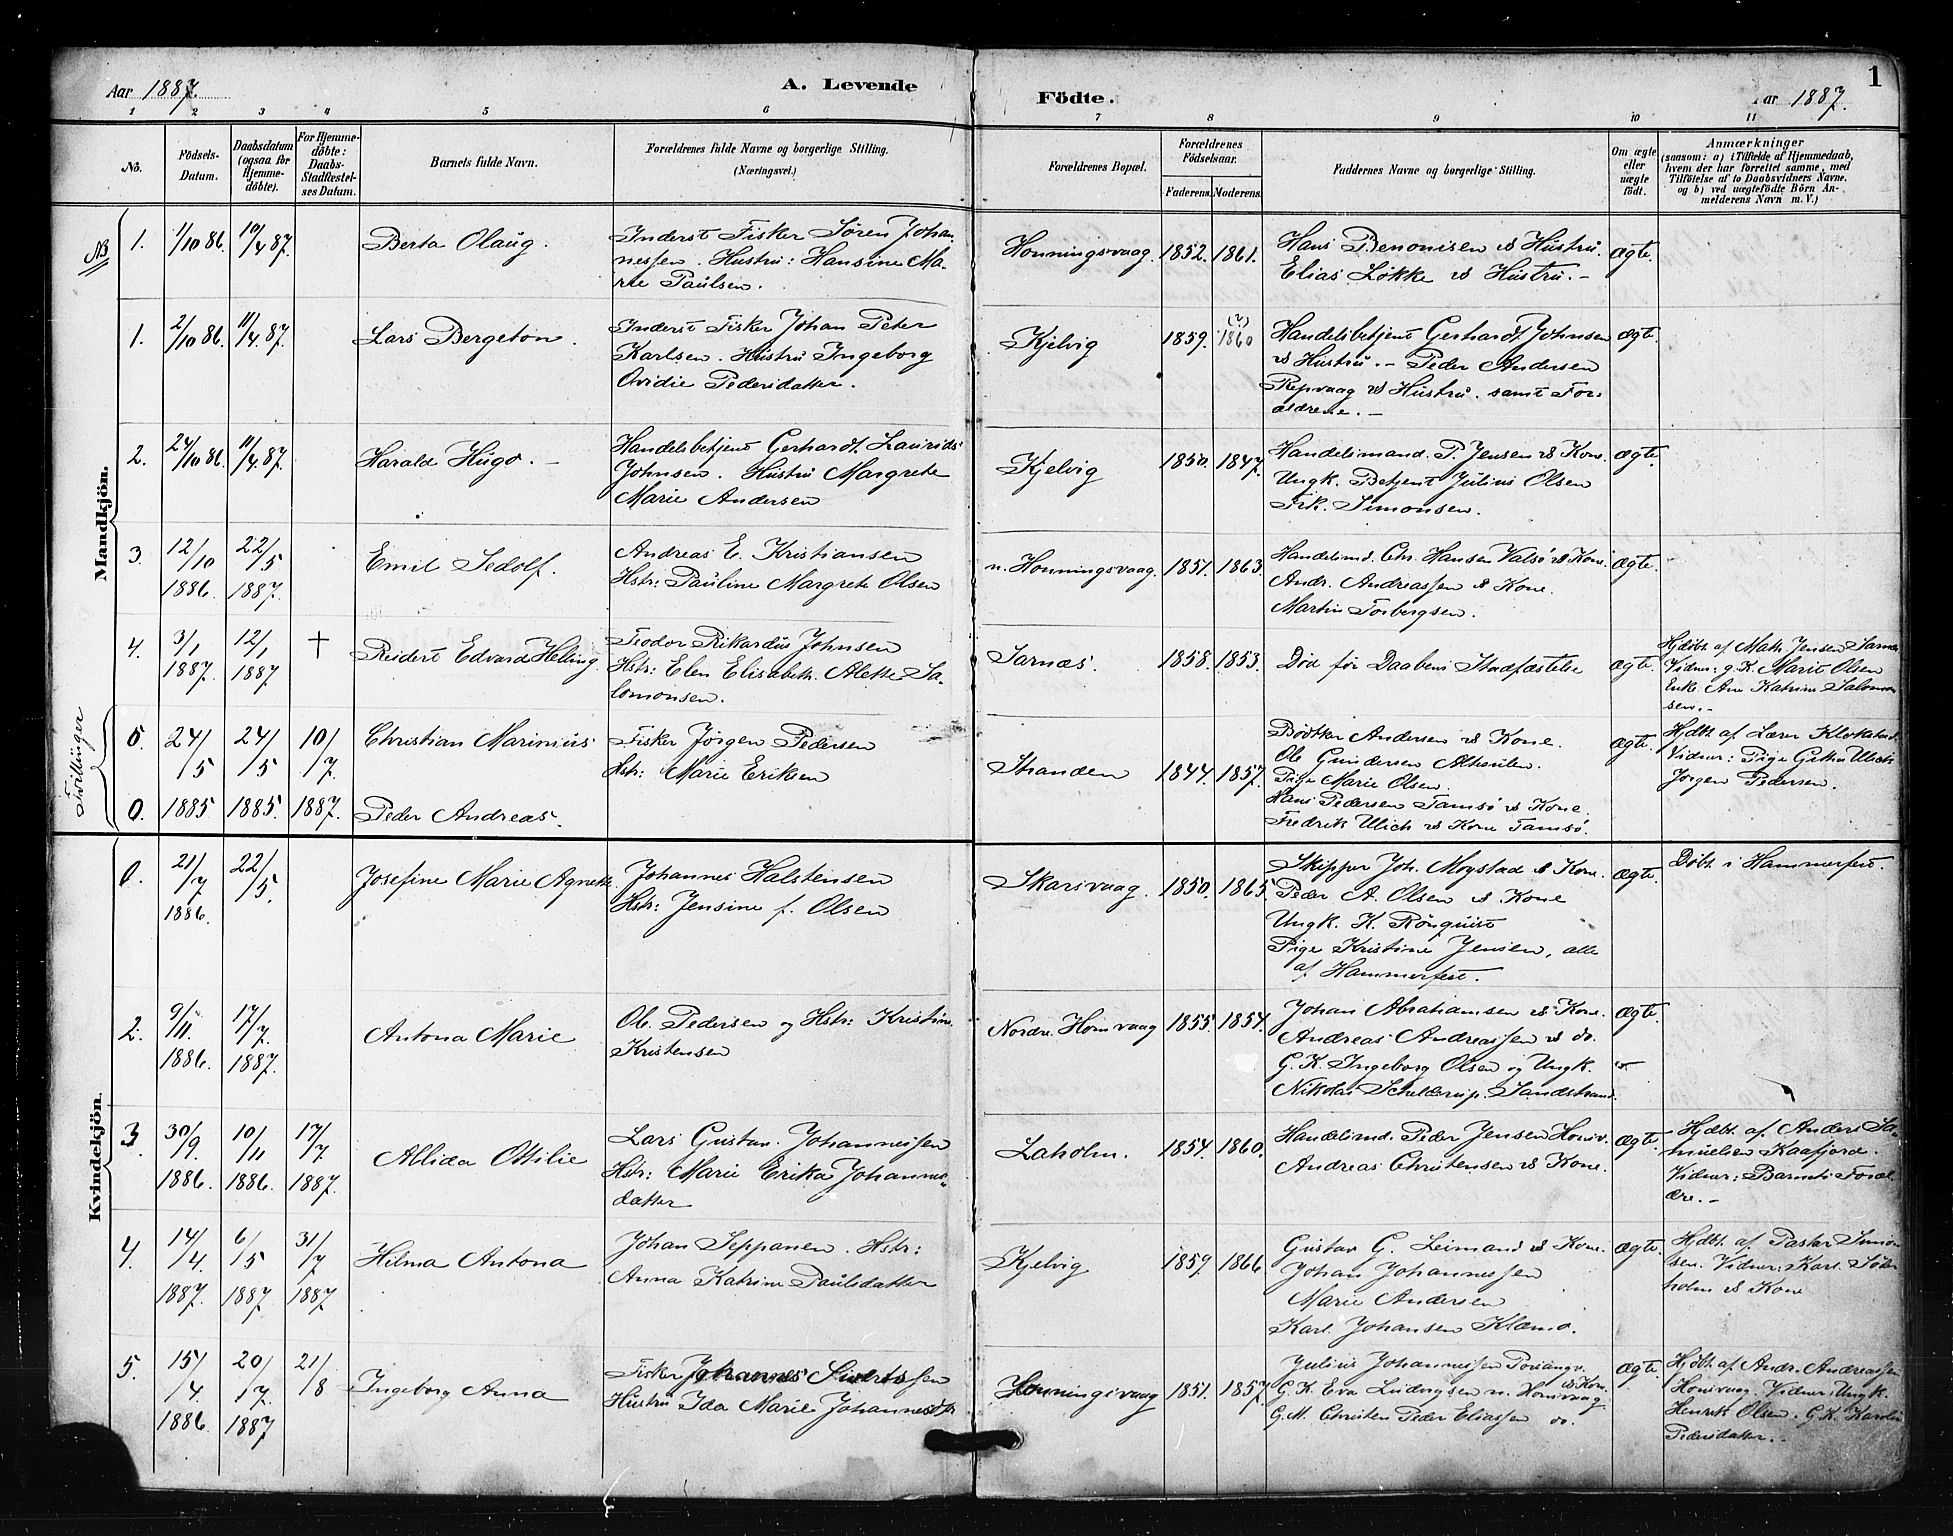 Aar 1887. A. Levende
1 2 3 4 5 6
No. Födsels-Datum. Daabsdatum (ogsaa for Hjemmedöbte). For Hjemmedöbte: Daabs-Stadfæstelses Datum. Barnets fulde Navn. Forældrenes fulde Navne og borgerlige Stilling. (Næringsvei.)
Födte. Aar 1887. 1
7 8 9 10 11
Forældrenes Bopæl. Forældrenes Födselsaar. Faderens. Moderens. Faddernes Navne og borgerlige Stilling. Om ægte eller uægte födt. Anmærkninger
(saasom: a) i Tilfælde af Hjemmedaab, hvem der har forrettet samme, med Tilföielse af to Daabsvidners Navne. og b) ved uægtefödte Börn Anmelderens Navn m. V.)
Mandkjön.
NB 1. 1/10 86. 10/4 87. Berta Olaug. Inderst Fisker Sören Johan-
nessen. Hustru: Hansine Ma-
rie Paulsen.
Honningsvaag. 1852. 1861. Hans Benonisen & Hustru. Ægte.
Elias Løkke & Hustru. –
1. 2/10 86. 11/4 87. Lars Bergeton. Inderst Fisker Johan Peter
Karlsen. Hustru Ingeborg
Ovidie Pedersdatter.
Kjelvig 1859. (?) 1860 Handelsbetjent Gerhardt Johnsen Ægte.
& Hustru. – Peder Andersen
Repvaag & Hustru. samt For-
ældrene. –
2. 24/10 86. 11/4 87. Harald Hugo. – Handelsbetjent Gerhardt Laurids
Johnsen. Hustru Margrete
Marie Andersen
Kjelvig 1850. 1847. Handelsmand P. Jensen & Kone. Ægte.
Ungk. Betjent Julius Olsen
Frk. Simonsen.
3. 12/10 1886. 22/5 1887. Emil Sedolf. Andreas E. Kristiansen
Hstr: Pauline Margrete Olsen
n. Honningsvaag. 1851. 1863. Handelsmd. Chr. Hansen Valsö & Kone. Ægte.
Andr. Andreassen & Kone.
Martin Torbergsen.
4. 3/1 1887. 12/1 1887 † Reidert Edvard Helling. Teodor Rikardus Johnsen
Hstr: Elen Elisabeth Alette Sa-
lomonsen.
Sarnæs. 1858. 1853. Død før Daabens Stadfæstelse Ægte. Hjdöbt af Mats Jensen Sarnæs
Vidner: g. K. Marit Olsen
Enke Ane Katrine Salomon
sen. –
Tvillinger
5. 24/5 1885 24/5 1885. 10/7 1887. Christian Marinius Fisker Jörgen Pedersen
Hstr: Marie Eriksen
0. Peder Andreas.
Stranden 1844. 1857. Bödtker Andersen & Kone. Ægte.
Ole Gundersen
Pige Marie Olsen.
Hans Pedersen Tamsö & Kone.
Fredrik Ulich & Kone Tamsö.
Hjdbt af Lærer
Vidner: Pige Ulich
Jörgen Pedersen.
Kvindekjön.
1. 21/7 1886. 22/5. Josefine Marie Agnete Johannes Halstensen
Hstr: Jensine f. Olsen
Skarsvaag. 1850. 1865. Skipper Joh. Mogstad & Kone. Ægte. Döbt i Hammerfest.
Peder A. Olsen & Kone
Ungk. K. Rönquist
Pige Kristine Jensen, alle
af Hammerfest.
2. 9/11. 1886. 17/7. 1887. Antona Marie Ole Pedersen og Hstr: Kristine
Kristensen
Nordre Honnvaag 1855. 1854. Johan Abrahamsen & Kone. Ægte.
Andreas Andreassen & do.
G. K. Ingeborg Olsen og Ungk.
Nikolai Schelderup Sandstrand.
3. 30/9 1886. 10/11 1886. 17/7 1887. Allida Ottilie Lars Gustav Johannessen
Hstr: Marie Erika Johannes-
datter
Laholm. 1854. 1860. Handelsmd. Peder Jensen Honsv. Ægte.
Andreas Christensen & Kone.
Hjdbt. af Anders Sa-
muelsen Kaafjord.
Vidner: Barnets Foræl-
dre. –
4. 14/4 1887. 6/5 1887. 31/7 1887 Hilma Antona Johan Seppanen. Hstr:
Anna Katrine Paulsdatter
Kjelvig 1859. 1866 Gustav G. Leimand & Kone. Ægte.
Johan Johannessen
Marie Andersen
Karl Johansen Klæmo.
Hjdbt. af Pastor Simon
sen. Vidner: Karl Söder
holm & Kone
5. 15/4 1886 20/7 1887 21/8 Ingeborg Anna Fisker Johannes Sivertssen
Hustru Ida Marie Johannesdtr
Honningsvaag 1851. 1857. Julius Johannessen Porsangr. & Kone. Ægte.
G. K. Eva Ludvigsen n. Honsvaag
G. M. Christen Peder Eliassen do.
Hjdbt. af Andr. Andreassen
Honsvaag. Vidner: Ungk.
Henrik Olsen. G. K. Karoline
Pedersdatter. –